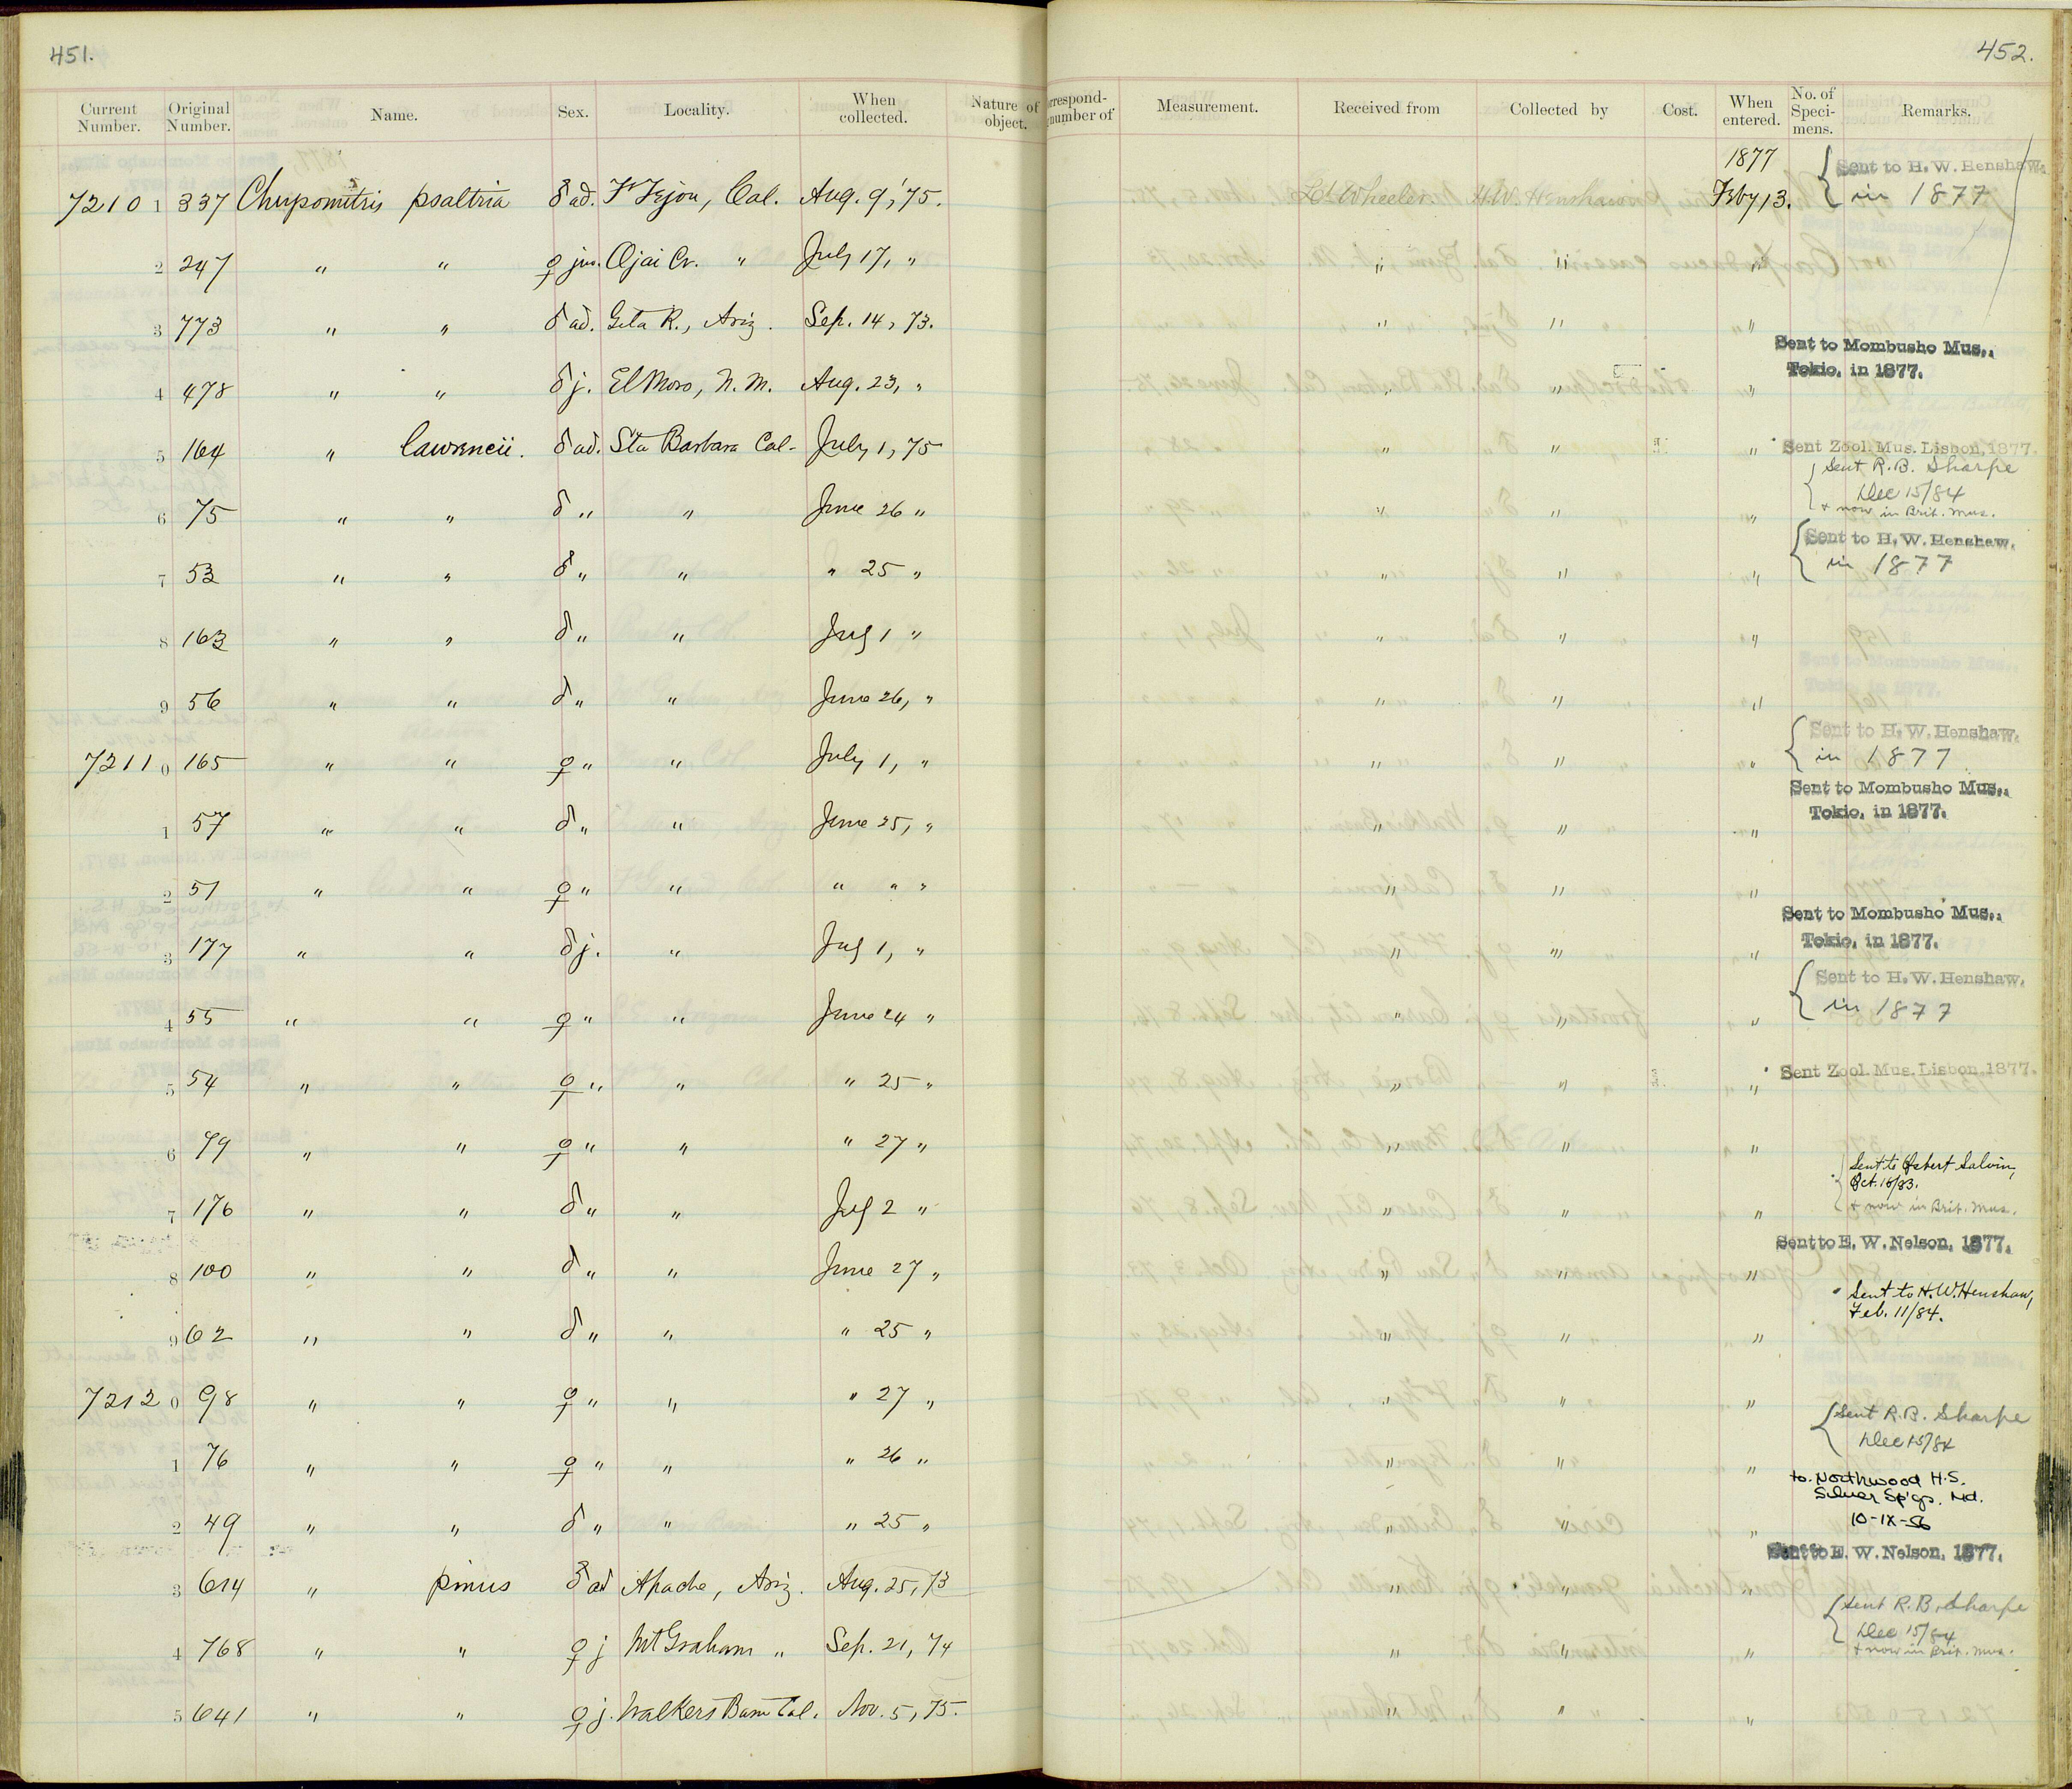 451.
452.
Current Number. Original Number. Name. Sex. Locality. When collected. Nature of object. orrespond- number of Measurement. Received from Collected by Cost. When entered. No. of Speci- mens. Remarks.
1877 { Sent to H. W. Henshaw.
72101 337 psaltria ♂ ad. Ft Tejon, Cal. Aug. 9, '75. Lt. Wheeler. H.W. Henshaw Feby 13. in 1877
2 247 " " ♀ juv. Ojai Cr. " July 17, " " " "
3 773 " " ♂ ad. Gila R., Ariz. Sep. 14, 73. " " "
Sent to Mombusho Mus.,
4 478 " " ♂ j. El Moro, N. M. Aug. 23, " " " " Tokio, in 1877.
5 164 " lawrencii. ♂ ad. Sta Barbara Cal- July 1, 75 " " " Sent Zool. Mus. Lisbon, 1877.
{ Sent R. B. Sharpe
Dec 15/84
6 75 " " ♂ " " June 26 " " " " + now in Brit. Mus.
{ Sent to H. W. Henshaw.
7 53 " " ♂ " " " 25 " " " " in 1877
8 163 " " ♂ " " July 1 " " " "
9 56 " " ♂ " " June 26, " " " "
{ Sent to H. W. Henshaw.
72110 165 " " ♀ " " July 1, " " " " in 1877
Sent to Mombusho Mus.,
1 57 " " ♂ " " June 25, " " " " Tokio, in 1877.
2 51 " " ♀ " " " " " " " "
Sent to Mombusho Mus.,
3 177 " " ♂ j. " July 1, " " " " Tokio, in 1877.
{ Sent to H. W. Henshaw.
4 55 " " ♀ " " June 24 " " " " in 1877
5 54 " " ♀ " " " 25 " " " " Sent Zool. Mus. Lisbon, 1877.
6 99 " " ♀ " " " 27 " " " "
{ Sent to Osbert Salvin,
Oct. 16/83.
7 176 " " ♂ " " July 2 " " " " + now in Brit. Mus.
Sent to E. W. Nelson, 1877.
8 100 " " ♂ " " June 27 " " " "
Sent to H. W. Henshaw,
Feb. 11/84.
9 62 " " ♂ " " " 25 " " " "
72120 98 " " ♀ " " " 27 " " " "
{ Sent R. B. Sharpe
Dec 15/84
1 76 " " ♀ " " " 26 " " " "
to. Northwood H.S.
Silver Sp'gs. Md.
2 49 " " ♂ " " " 25 " " " " 10-IX-56
Sent to E. W. Nelson, 1877.
3 614 " pinus ♂ ad Apache, Ariz. Aug. 25, 73 " " "
{ Sent R. B. Sharpe
Dec 15/84
4 768 " " ♀ j Mt Graham " Sep. 21, 74 " " " + now in Brit. Mus.
5 641 " " ♀ j. Walkers Basin Cal. Nov. 5, 75. " " "